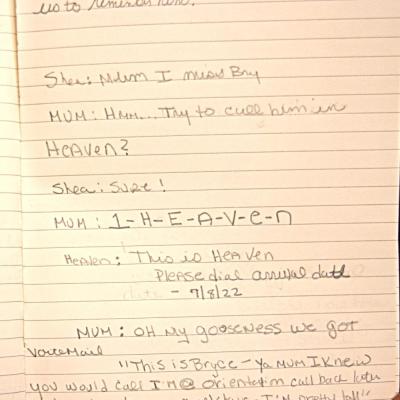 us to remember him.
Shea: Mum I miss Bry
MUM: Hmm... Try to call him in
HEAVEN?
Shea: SURE!
MUM: 1-H-E-A-V-e-n
Heaven: This is HEAVEN
Please dial arrival date
- 7/8/22
MUM: OH My gooseness we got
voicemail
"This is Bryce - Ya MUM I Knew
you would call I'm @ orientation call back later
I'm pretty